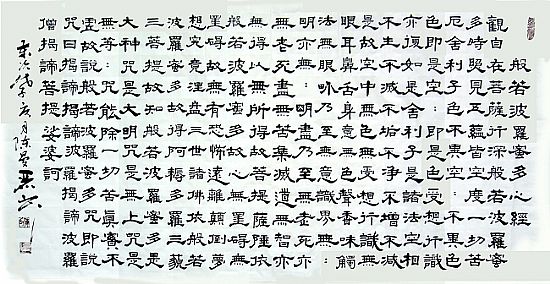 般若波羅蜜多心經
觀自在菩薩行深般若波羅蜜
多時照見五蘊皆空度一切苦
厄舍利子色不異空〻不異色
色即是空〻即是色受想行識
亦復如是舍利子是諸法空相
不生不滅不垢不淨不增不減
是故空中無色無受想行識無
眼耳鼻舌身意無色聲香味觸
法無眼界乃至無意識界無〻
明亦無〻明盡乃至無老死亦
無老死盡無苦集滅道無智亦
無得以無所得故菩提薩埵依
般若波羅蜜多故心無罣礙無
罣礙故無有恐怖遠離顛倒夢
想究竟涅盤三世諸佛依般若
波羅蜜多故得阿耨多羅三藐
三菩提故知般若波羅蜜多是
大神咒是大明咒是無上咒是
無等〻咒能除一切苦真實不
虛故說般若波羅蜜多咒即說
咒曰揭諦揭諦波羅揭諦波羅
僧揭諦菩提娑婆訶